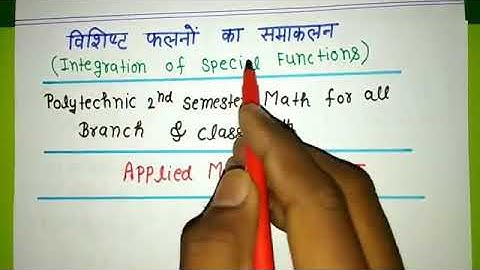 विशिष्ट फलनों का समाकलन
(Integration of Special Functions)
Polytechnic 2nd Semester Math for all
Branch & Class
Applied